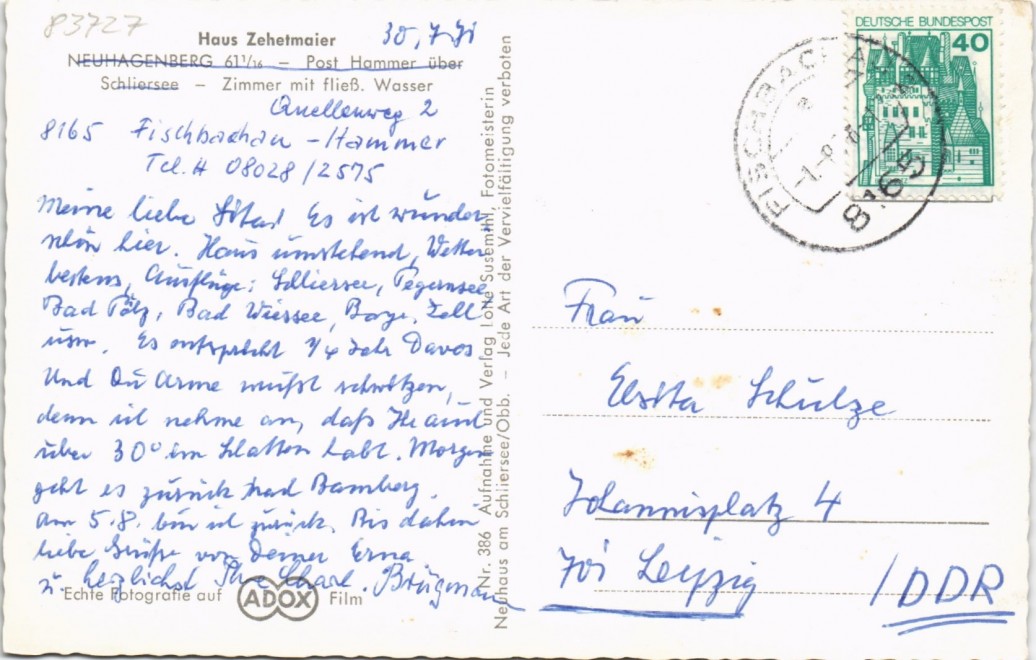 83727
Haus Zehetmaier
30,7
NEUHAGENBERG 61 1/16 – Post Hammer über
Schliersee – Zimmer mit fließ. Wasser
Quellenweg 2
8165 Fischbachau - Hammer
Tel. # 08028/2575
Meine liebe Sitta! Es ist wunder
schön hier. Haus umstehend, Wetter
bestens, Ausflüge: Schliersee, Tegernsee
Bad Tölz, Bad Wiessee, Bayr. Zell
usw. Es entspricht 1/4 Jahr Davos
Und Du Arme mußt schwitzen,
denn ich nehme an, daß Ihr auch
über 30° im Schatten habt. Morgen
geht es zurück nach Bamberg.
Am 5.8. bin ich zurück. Bis dahin
liebe Grüße von Deiner Erna
u. herzlichst Ihre Charl. Brügmann
Echte Fotografie auf ADOX Film
Nr. 386 Aufnahme und Verlag Lotte Susemihl, Fotomeisterin
Neuhaus am Schliersee/Obb. – Jede Art der Vervielfältigung verboten
DEUTSCHE BUNDESPOST
40
FISCHBACHAU
8165
Frau
Elsitta Schulze
Johannisplatz 4
701 Leipzig /DDR